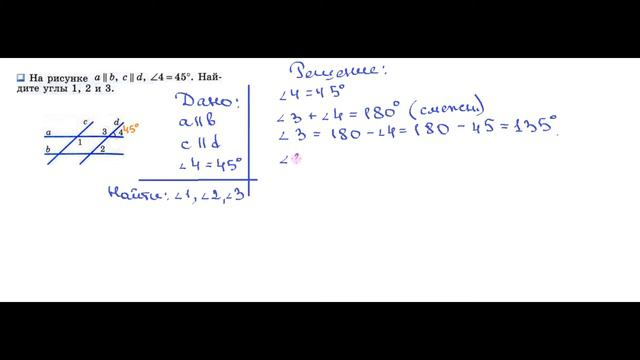 На рисунке a ∥ b, c ∥ d, ∠4 = 45°. Най-
дите углы 1, 2 и 3.
c
d
a
3
4
45°
1
b
2
Дано:
a∥b
c∥d
∠4=45°
Найти: ∠1, ∠2, ∠3
Решение:
∠4=45°
∠3+∠4=180° (смежн.)
∠3 = 180-∠4=180-45=135°.
∠